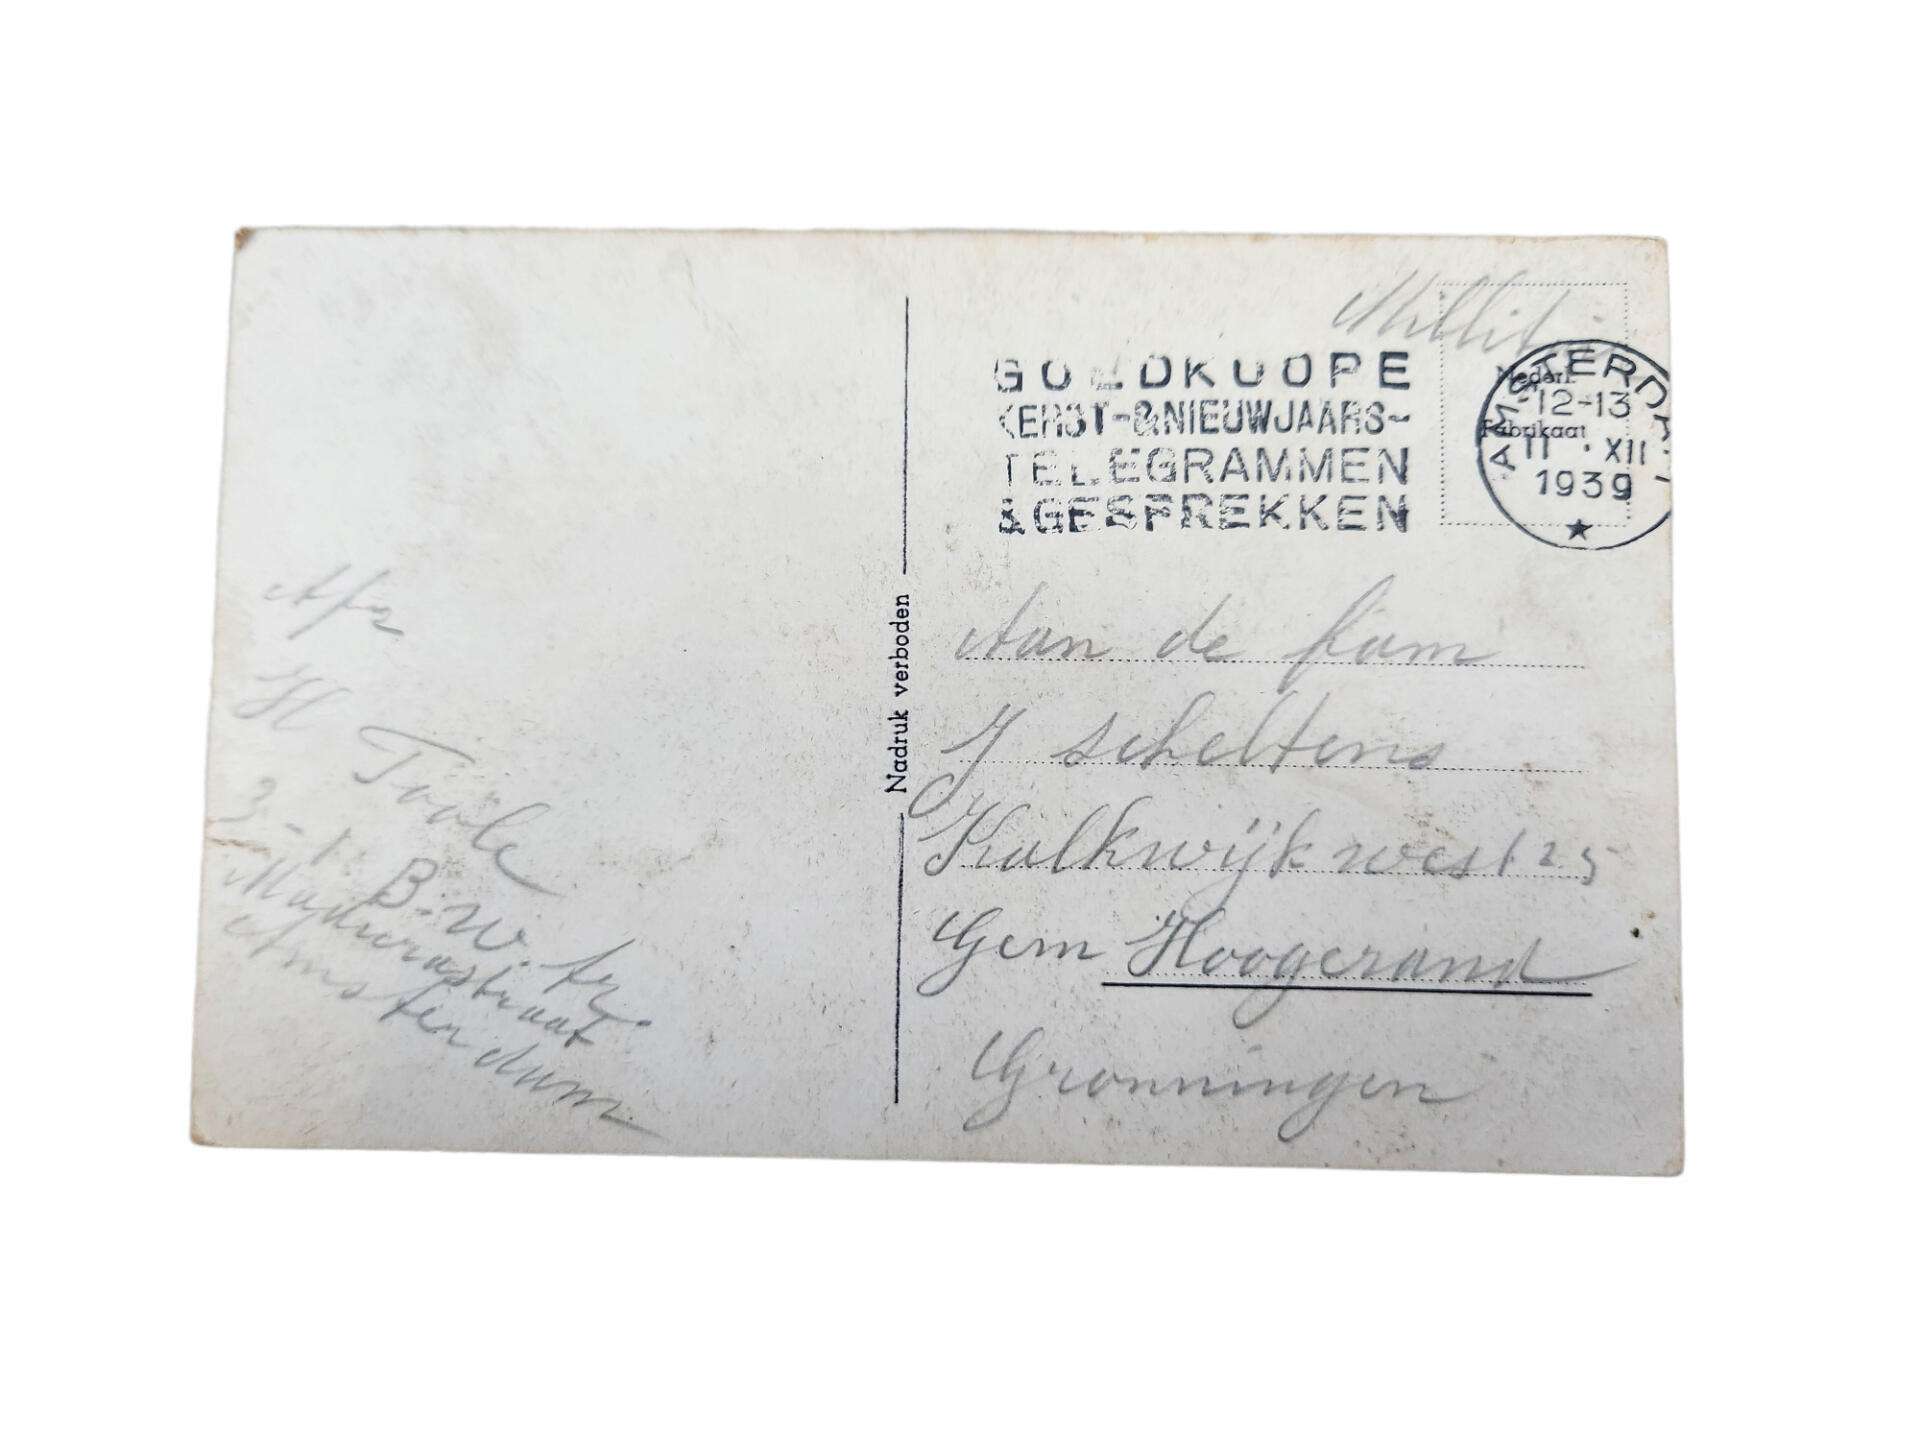 Afz
H Toole
3-1 B.W. tr.
Madurastraat
Amsterdam
Nadruk verboden
Millit
GOEDKOOPE
KERST-&NIEUWJAARS-
TELEGRAMMEN
&GESPREKKEN
AMSTERDAM
Nederl.
12-13
Fabrikaat
11 · XII
1939
Aan de fam
J scheltens
Kalkwijk west 25
Gem Hoogezand
Gronningen